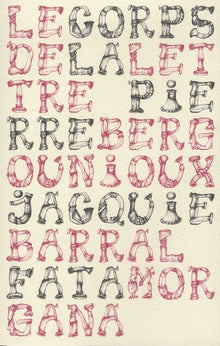 LE CORPS
DE LA LET
TRE PiE
RRE BERG
OUNiOUX
jACQUiE
BARRAL
FATA MOR
GANA